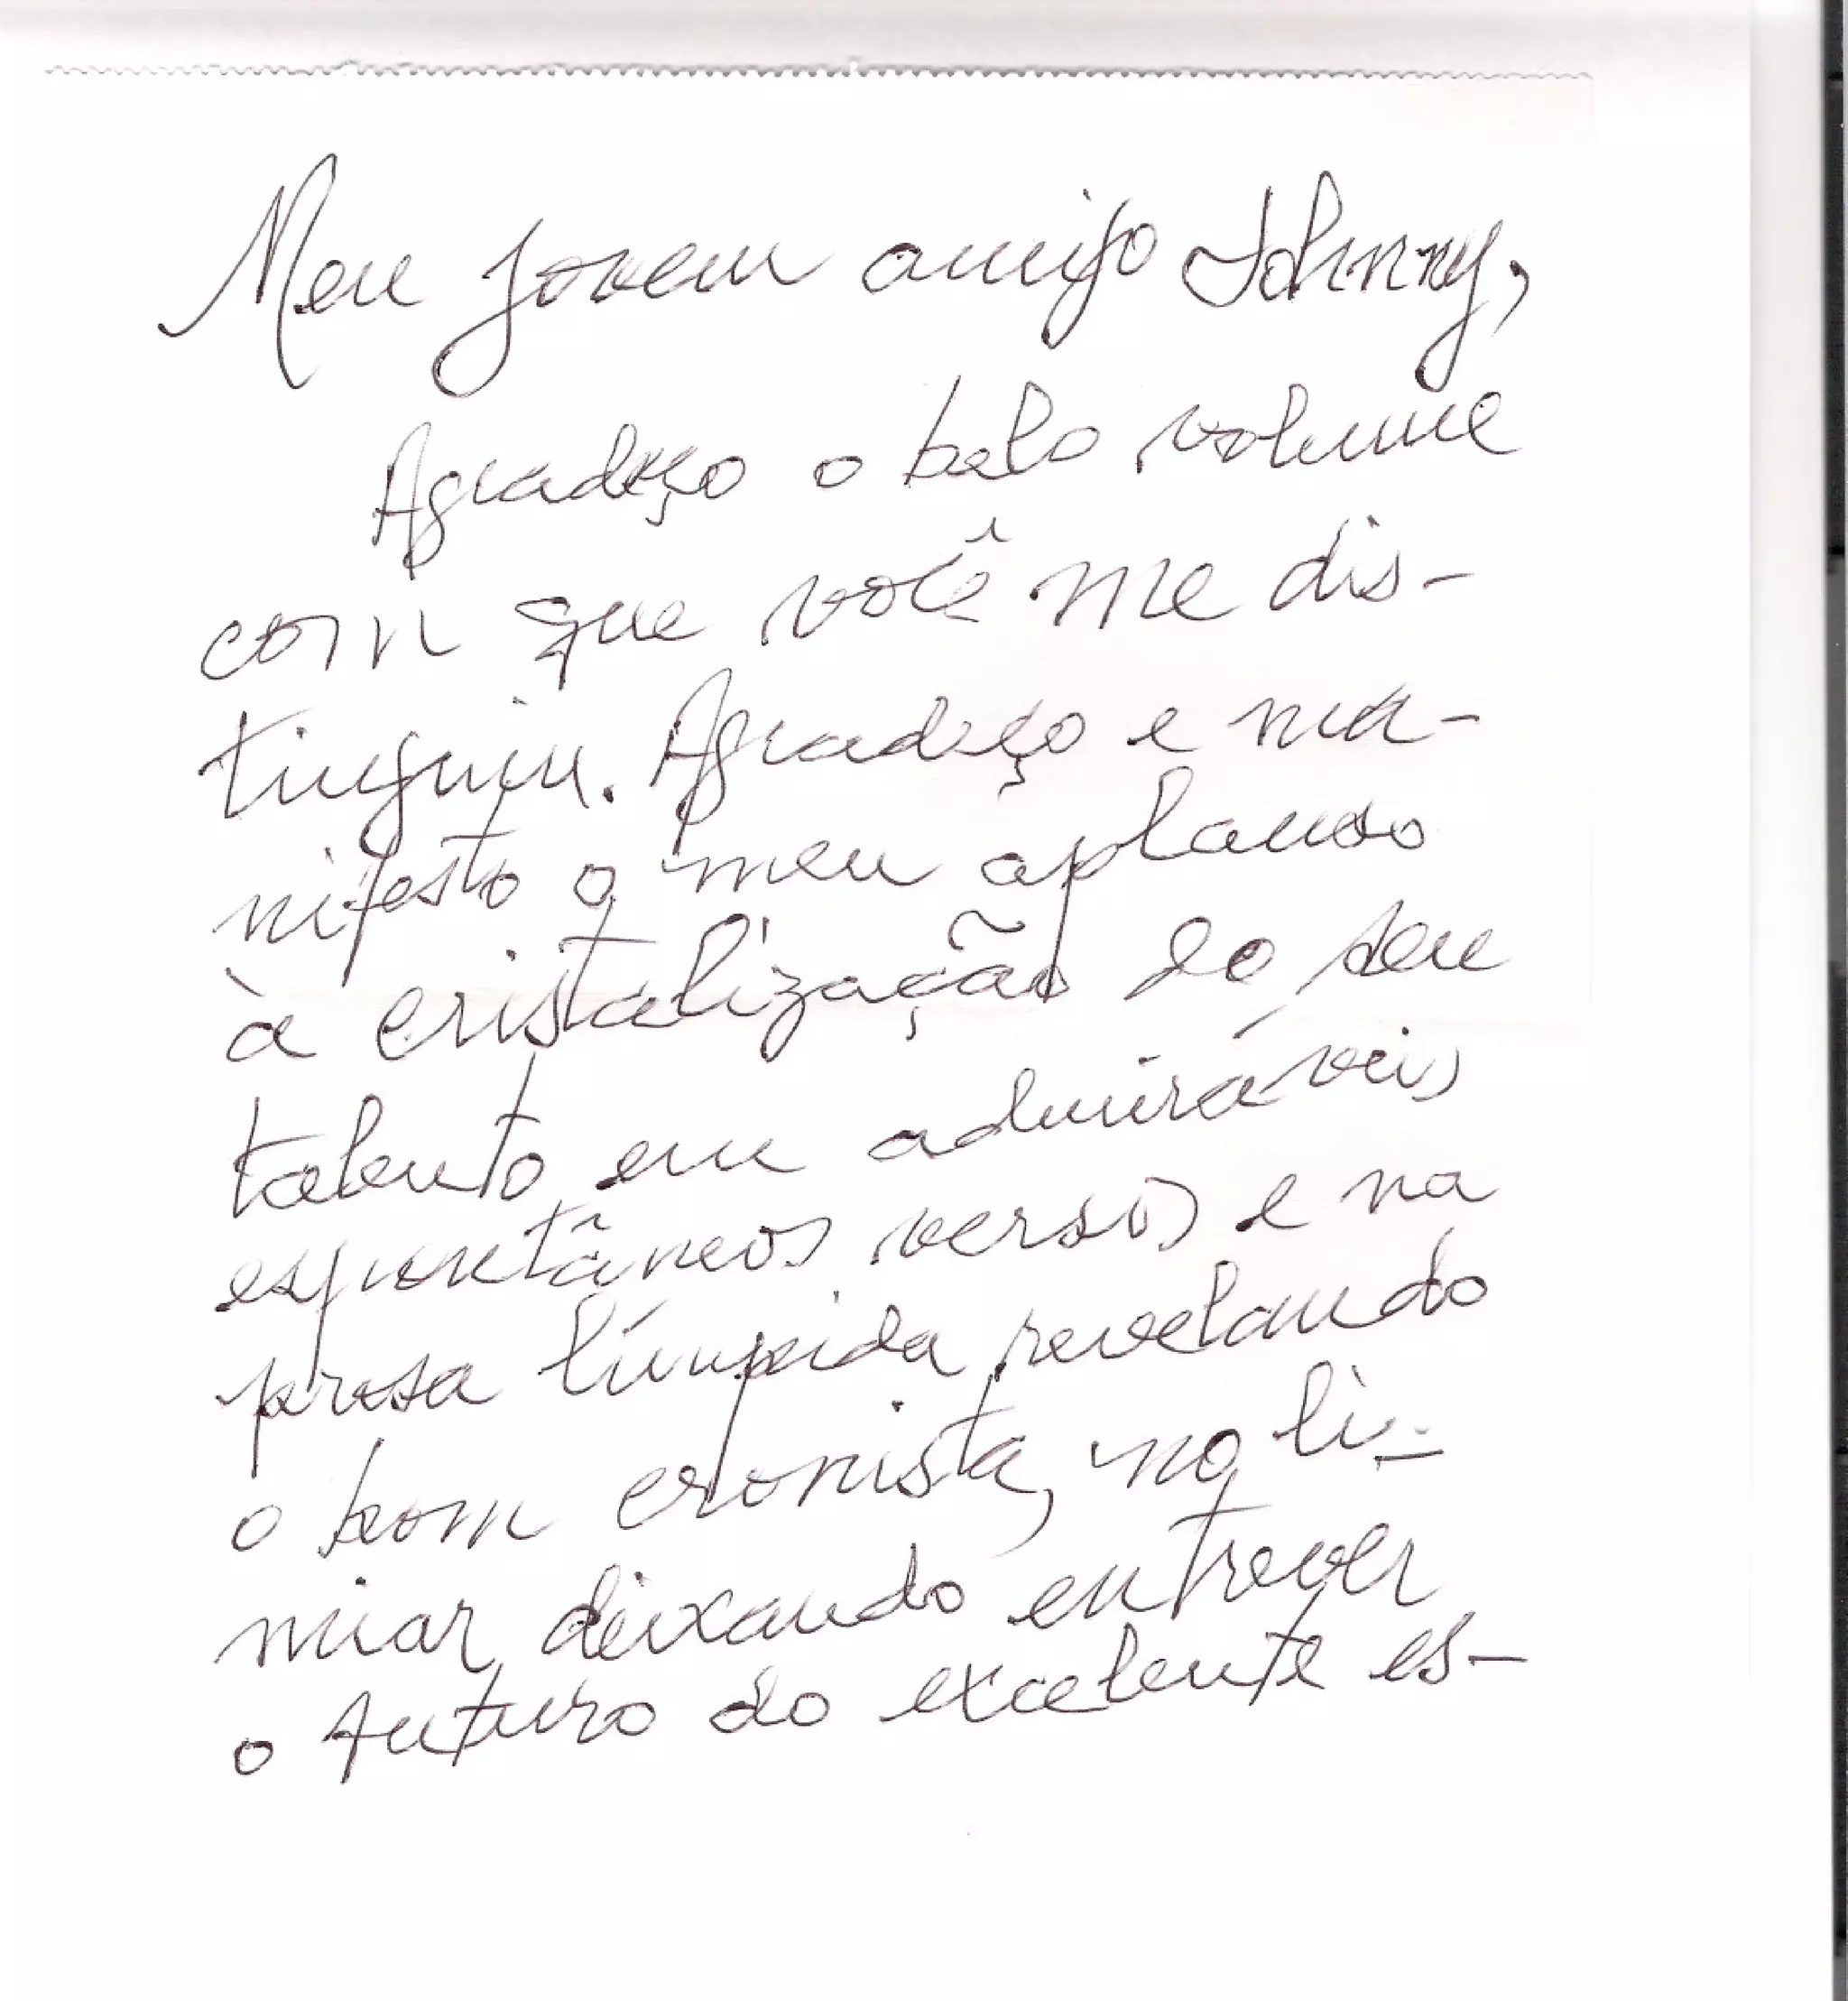 Meu jovem amigo Johnny,
Agradeço o belo volume
com que você me dis-
tinguiu. Agradeço e ma-
nifesto o meu aplauso
à cristalização do seu
talento em admiráveis
espontâneos versos e na
prosa límpida revelando
o bom cronista, no li-
miar deixando entrever
o futuro do excelente es-